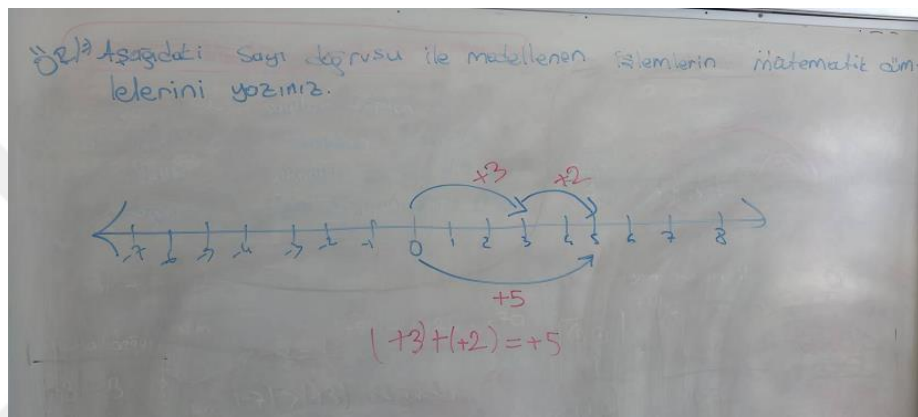 Ör: Aşağıdaki sayı doğrusu ile modellenen işlemlerin matematik cüm-
lelerini yazınız.
+3 +2
-7 -6 -5 -4 -3 -2 -1 0 1 2 3 4 5 6 7 8
+5
(+3)+(+2)=+5